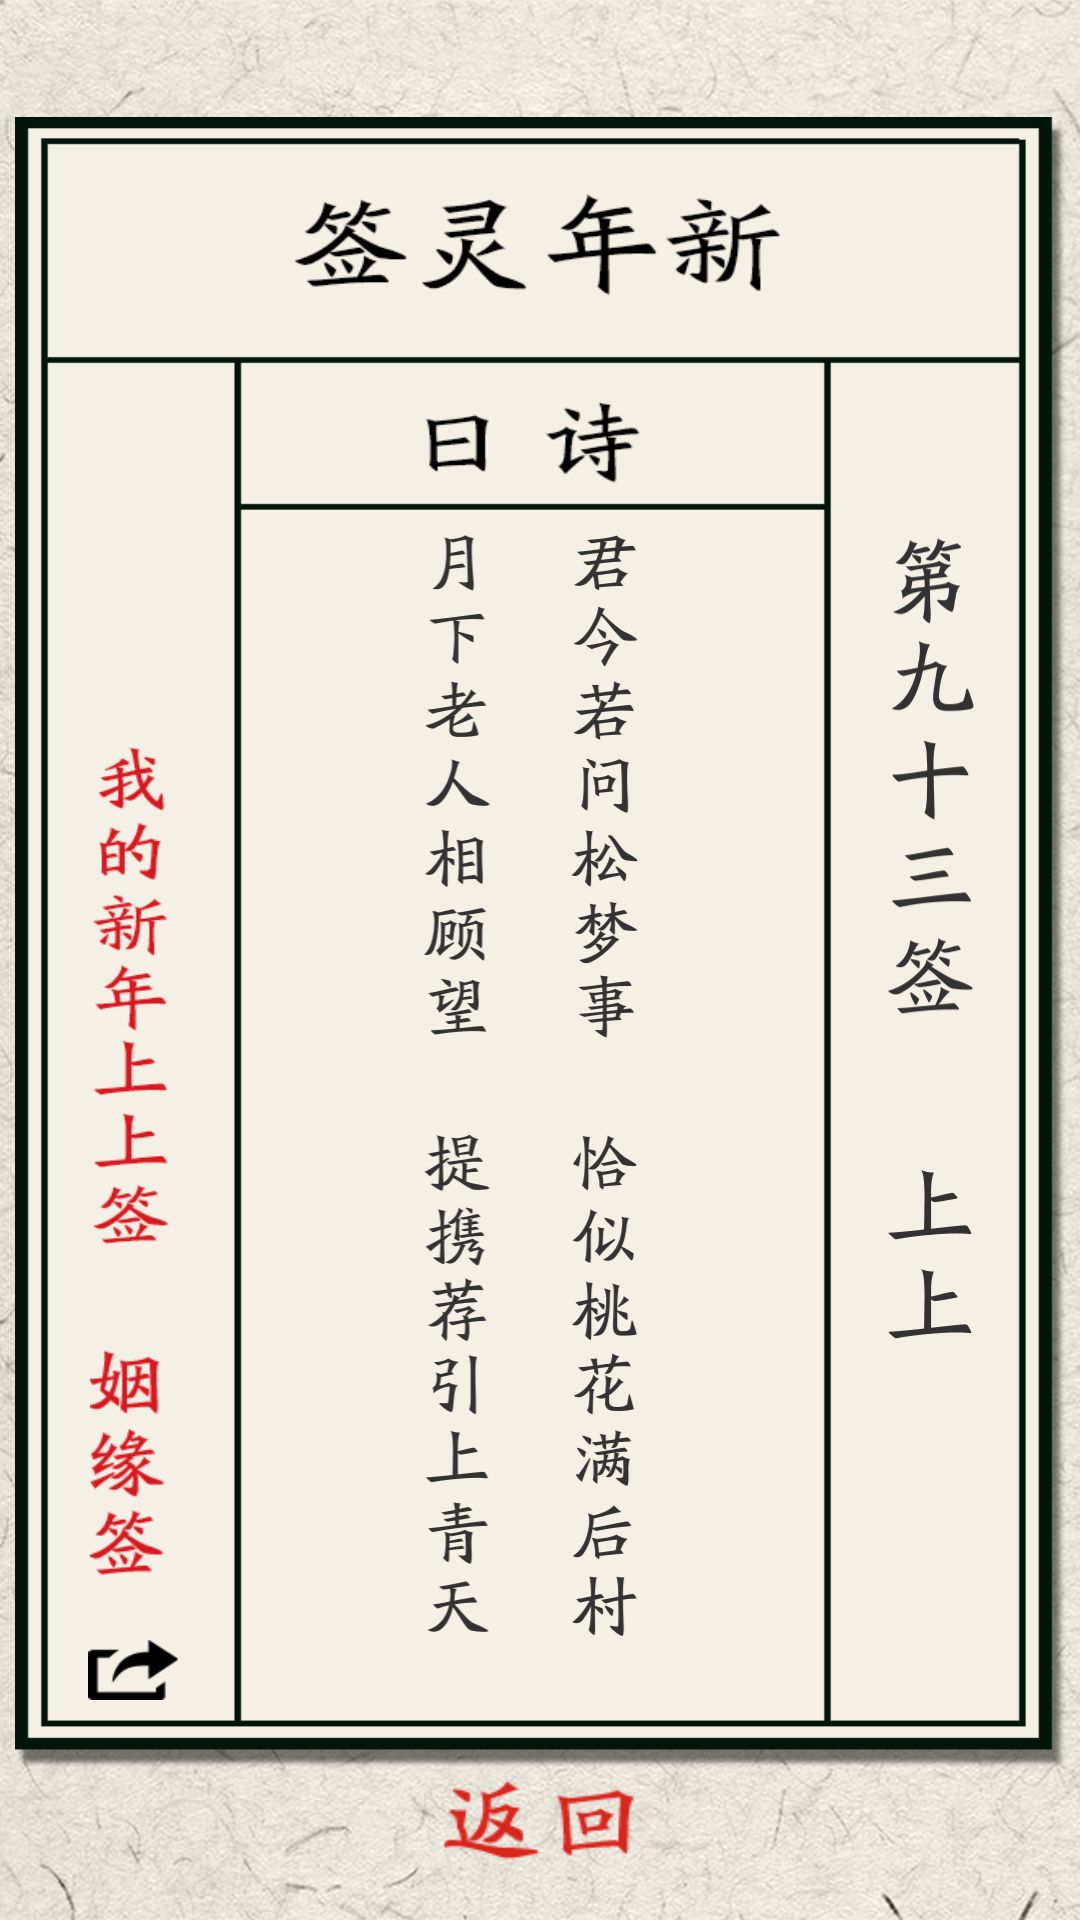 新年灵签
第九十三签 上上
诗曰
君今若问松梦事 恰似桃花满后村
月下老人相顾望 提携荐引上青天
我的新年上上签 姻缘签
返回